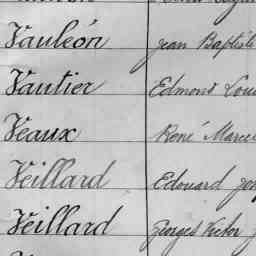 Vauleón Jean Baptiste
Vautier Edmond Loui
Veaux René Marcel
Veillard Edouard Jos
Veillard Georges Victor J